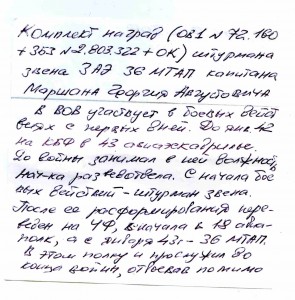 Комплект наград (ОВ1 N 72.160
+353 N2.803.322 + ОК) штурмана
звена 3АЭ 36 МТАП капитана
Маршана Георгия Августовича
В ВОВ участвует в боевых дейст
виях с первых дней. До янв. 42
на КБФ в 43 авиаэскадрилье.
До войны занимал в ней должность
нач-ка разведотдела. С начала бое
вых действий - штурман звена.
После ее расформирования пере-
веден на ЧФ, вначале в 18 авиа-
полк, а с января 43г - 36 МТАП.
В этом полку и прослужил до
конца войны, отвоевав помимо